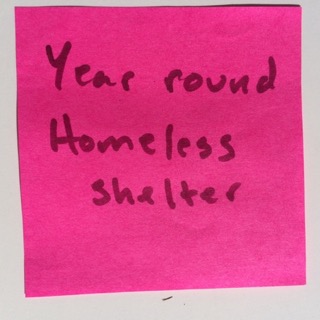 Year round
Homeless
shelter